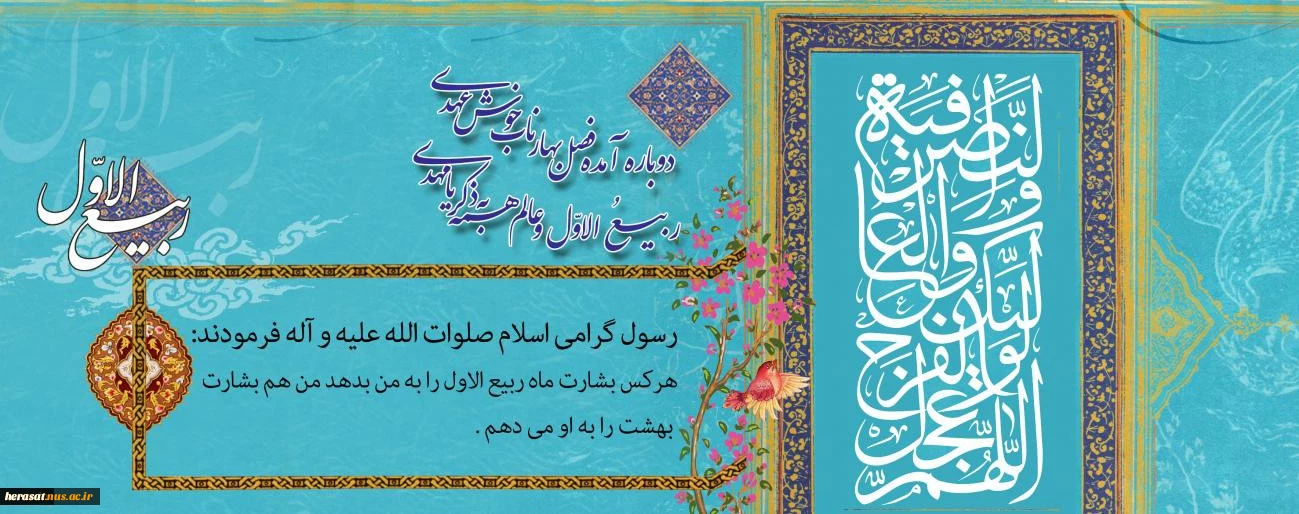 اللهم عجل لولیک الفرج والعافیة والنصر
دوباره آمده فصل بهار ناب خوش عهدی
ربیعُ الاوّل و عالم همه به ذکر یا مهدی
ربیع الاوّل
رسول گرامی اسلام صلوات الله علیه و آله فرمودند:
هرکس بشارت ماه ربیع الاول را به من بدهد من هم بشارت
بهشت را به او می دهم .
ربیع الاوّل
herasat.nus.ac.ir